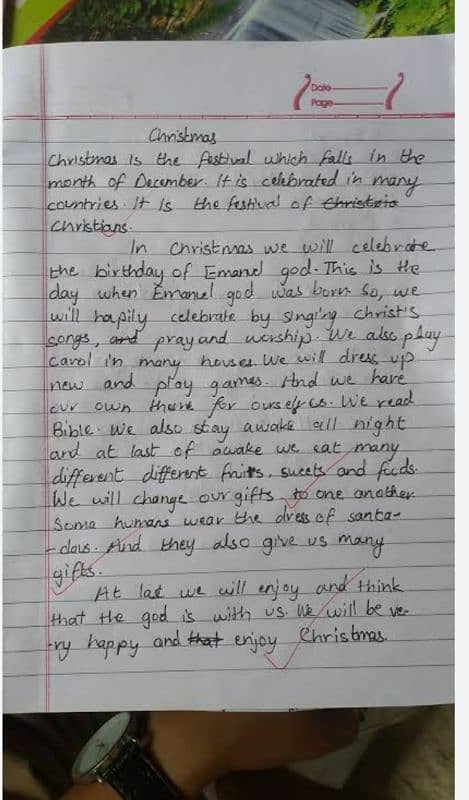 Date
Page
Christmas
Christmas is the festival which falls in the
month of December. It is celebrated in many
countries. It is the festival of Christain
Christians.
In Christmas we will celebrate
the birthday of Emanuel god. This is the
day when Emanuel god was born. So, we
will hapily celebrate by singing christ's
songs, and pray and worship. We also play
carol in many houses. We will dress up
new and play games. And we have
our own for ourselves. We read
Bible. We also stay awake all night
and at last of awake we eat many
different different fruits, sweets and foods.
We will change our gifts to one another.
Some humans wear the dress of santa-
-claus. And they also give us many
gifts.
At last we will enjoy and think
that the god is with us. We will be ve-
-ry happy and that enjoy Christmas.